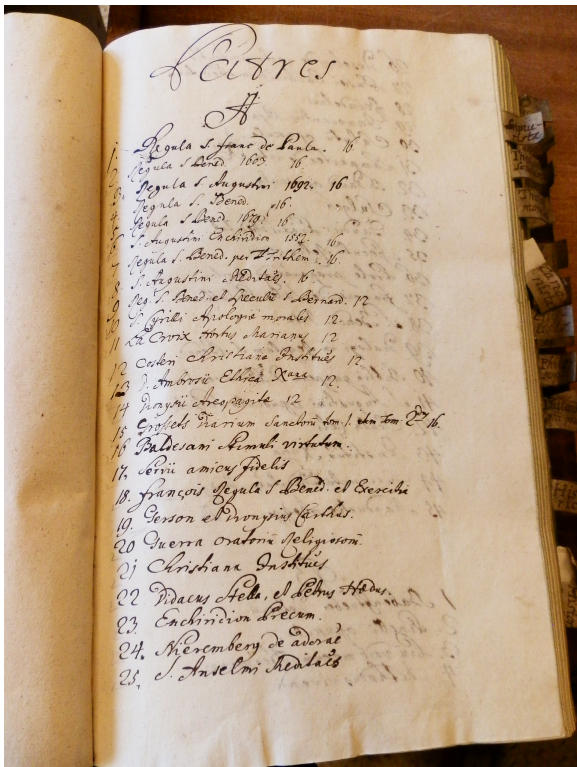 Patres
A
1. Regula S. Franc de Paula. 16
2 Regula S Bened 1603 16.
3. Regula S. Augustini 1692. 16
4. Regula S. Bened. 16.
5 Regula S Bened. 1679. 16
6 S. Augustini Enchiridion 16
7 Regula S. Bened. per Trithem. 16.
8. S. Augustini Meditaēs. 16
9 Reg. S. Bened. et Specula S Bernard. 12
10 S. Cyrilli Apologiæ morales 12.
11 La Croix Hortus Marianus 12
12 Costeri Christianæ Institūes 12
13 D. Ambrosii Ethica Xana 12.
14 Dionysii Areopagitæ 12
15 Diarium Sanctorū tom. 1. item tom. 16.
16 Baldesani Stimuli virtutum.
17. Servii amicus fidelis
18. François Regula S Bened. et Exercitia
19. Gerson et Dionysius Carthus.
20 Guerra oratoriū Religiosorū.
21 Christiana Institūes
22 Didacus Stella, et Petrus Hædus.
23. Enchiridion Precum.
24. Nieremberg de adoraē
25. S. Anselmi Meditaēs